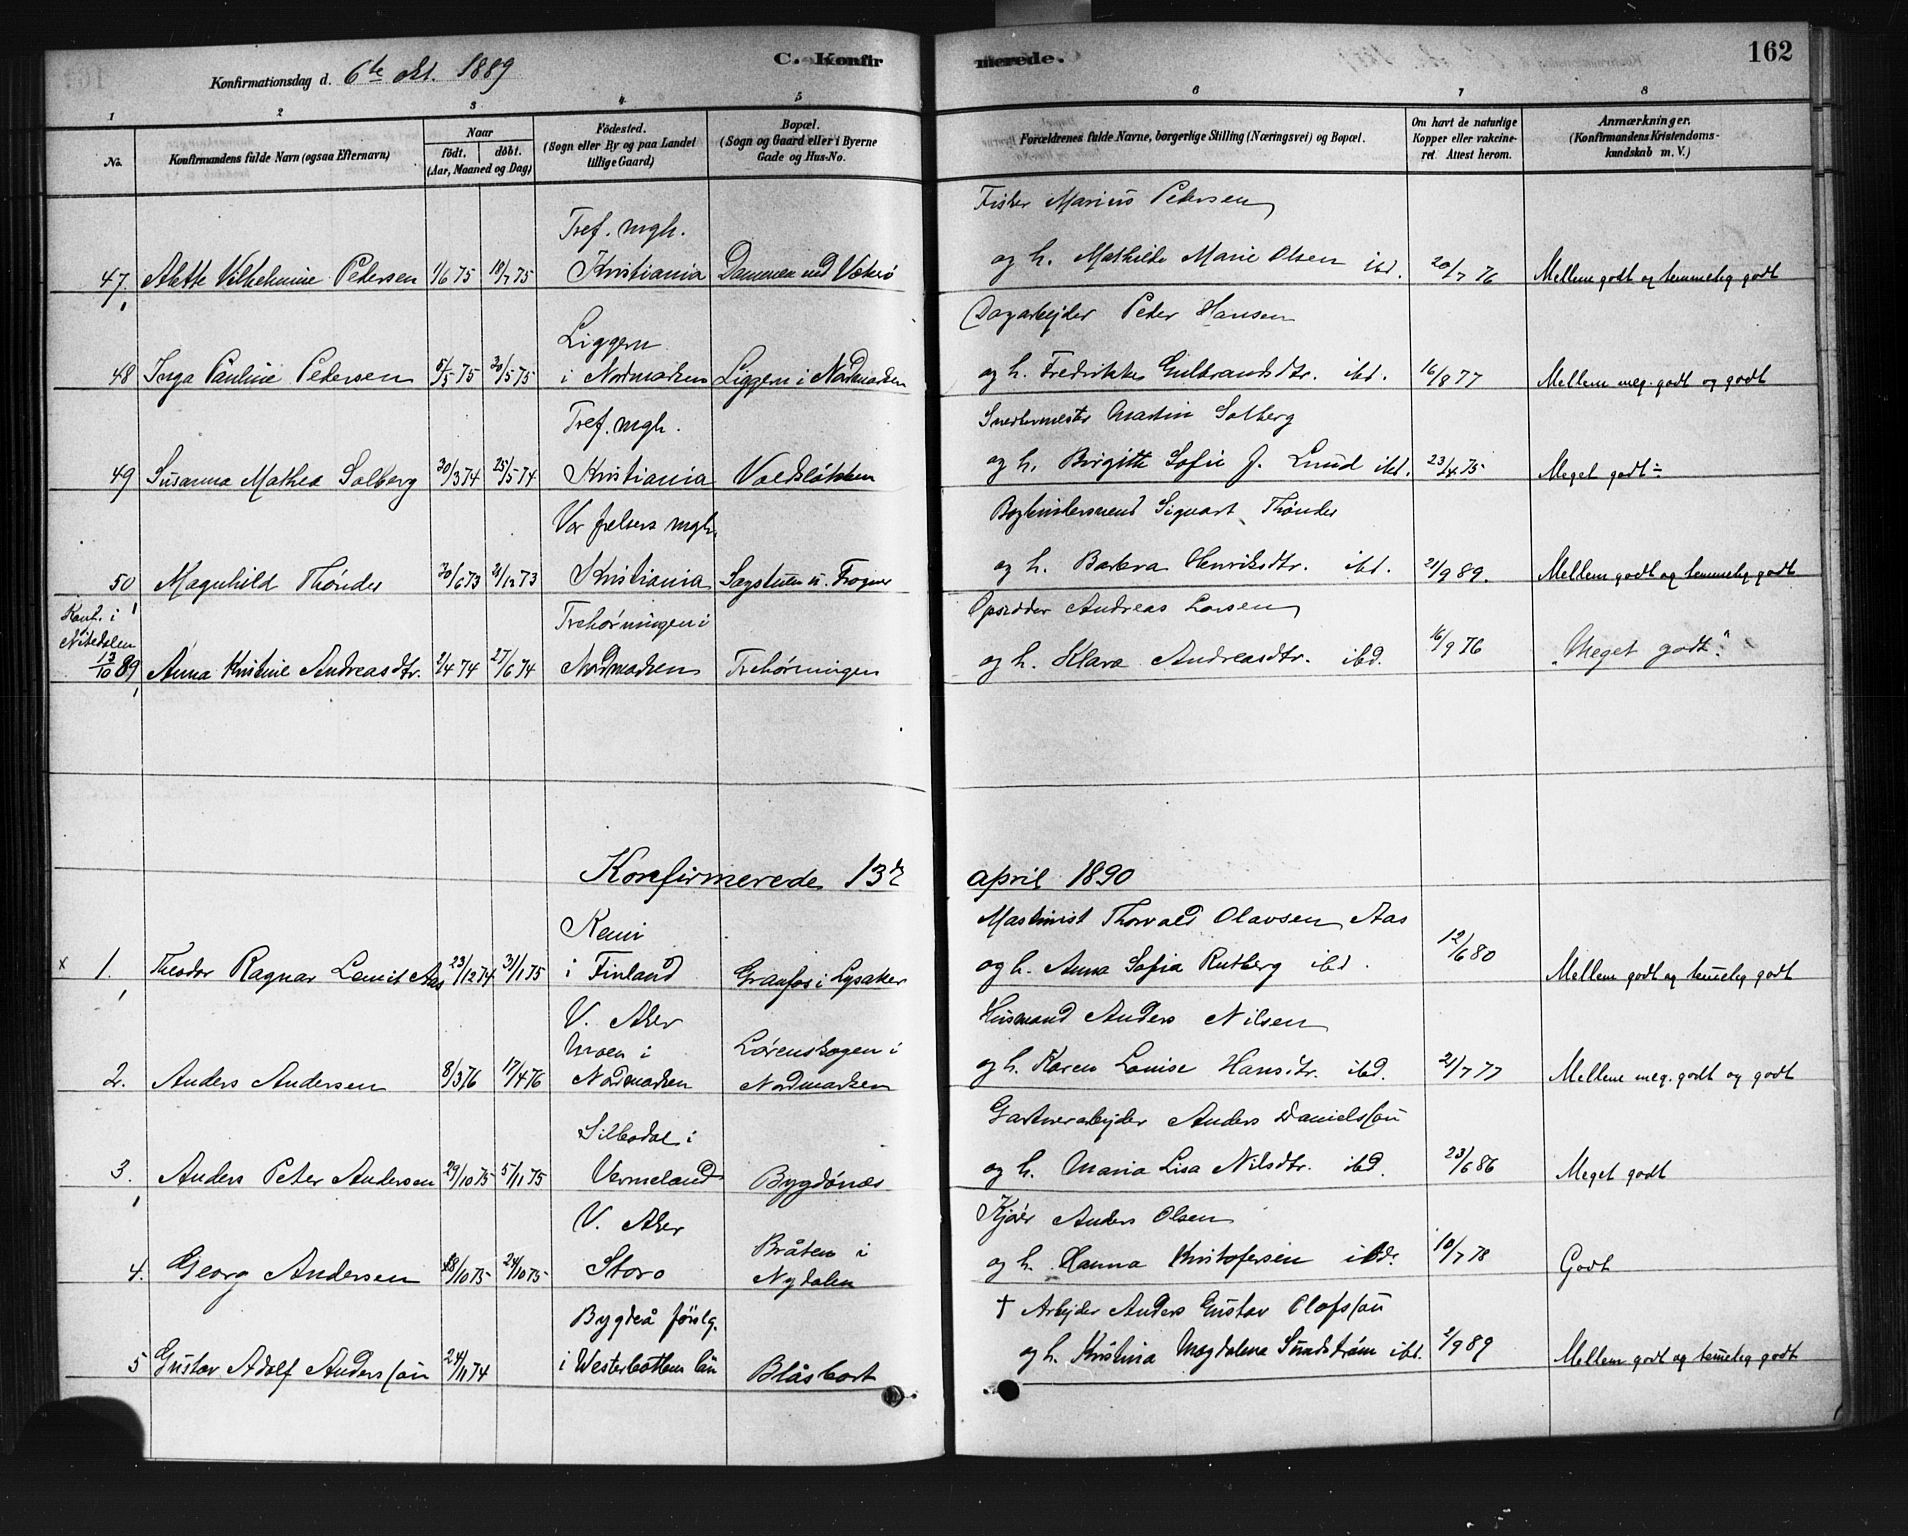 162
Konfirmationsdag d. 6te okt. 1889
C. Konfirmerede.
1 2 3 4 5 6 7 8
No.
Konfirmandens fulde Navn (ogsaa Efternavn)
Naar
födt. döbt.
(Aar, Maaned og Dag)
Födested.
(Sogn eller By og paa Landet
tillige Gaard)
Bopæl.
(Sogn og Gaard eller i Byerne
Gade og Hus-No.
Forældrenes fulde Navne, borgerlige Stilling (Næringsvei) og Bopæl.
Om havt de naturlige
Kopper eller vakcine-
ret Attest herom.
Anmærkninger.
(Konfirmandens Kristendoms-
kundskab m. V.)
Tref. mgh. Fisker Marius Petersen
47. Alette Vilhelmine Petersen 1/6 75 18/7 75 Kristiania Dammen ved Vækerö og h. Mathilde Marie Olsen ibd. 20/7 76 Mellem godt og temmelig godt
Liggern Dagarbejder Peter Hansen
48 Inga Pauline Pedersen 5/5 75 30/5 75 i Nordmarken Liggern i Nordmarken og h. Fredrikke Gulbrandsdtr. ibd. 16/8 77 Mellem meg. godt og godt
Tref. mgh. Snedkermester Martin Solberg
49 Susanna Mathea Solberg 30/3 74 25/5 74 Kristiania Voldsløkken og h. Birgitte Sofie J. Lund ibd. 23/4 75 Meget godt ÷
Vor frelsers mgh. Sigvart Thønder
50 Magnhild Thönder 30/6 73 21/12 73 Kristiania Sagstuen u. Frogner og h. Barbra Henriksdtr. ibd. 21/9 89. Mellem godt og temmelig godt
Konf. i Nitedalen Trehørningen i Opsidder Andreas Larsen
13/10 89 Anna Kristine Andreasdtr. 2/4 74 27/6 74 Nordmarken Trehørningen og h. Klara Andreasdtr. ibd. 16/9 76 "Meget godt".
Konfirmerede 13de april 1890
Kemi Maskinist Thorvald Olavsen Aas
x 1. Theodor Ragnar Aas 23/12 74 31/1 75 i Finland Granfos i Lysaker og h. Anna Sofia Rutberg ibd. 12/6 80 Mellem godt og temelig godt
V. Aker Husmand Anders Nilsen
Moen i Lørenskogen i
2. Anders Andersen 8/3 76 17/4 76 Nordmarken Nordmarken og h. Karen Louise Hansdtr. ibd. 21/7 77 Mellem meg. godt og godt
Silbodal i Gartnerarbejder Anders Danielsson
3. Anders Peter Andersen 29/10 75 5/11 75 Vermeland Bygdönæs og h. Maria Lisa Nilsdtr. ibd. 23/6 86 Meget godt
V. Aker Kjöir Anders Olsen
Bråten i
4. Georg Andersen /10 75 24/10 75 Storo Nydalen og h. Hanna Kristofersen ibd. 10/7 78 Godt
Bygdeå försg. † Arbejder Anders Gustav Olofsson
5 Gustav Adolf Andersson 24/11 74 i Westerbottens län Blåsbort og h. Kristina Magdalena Sundström ibd. 2/9 89 Mellem godt og temelig godt